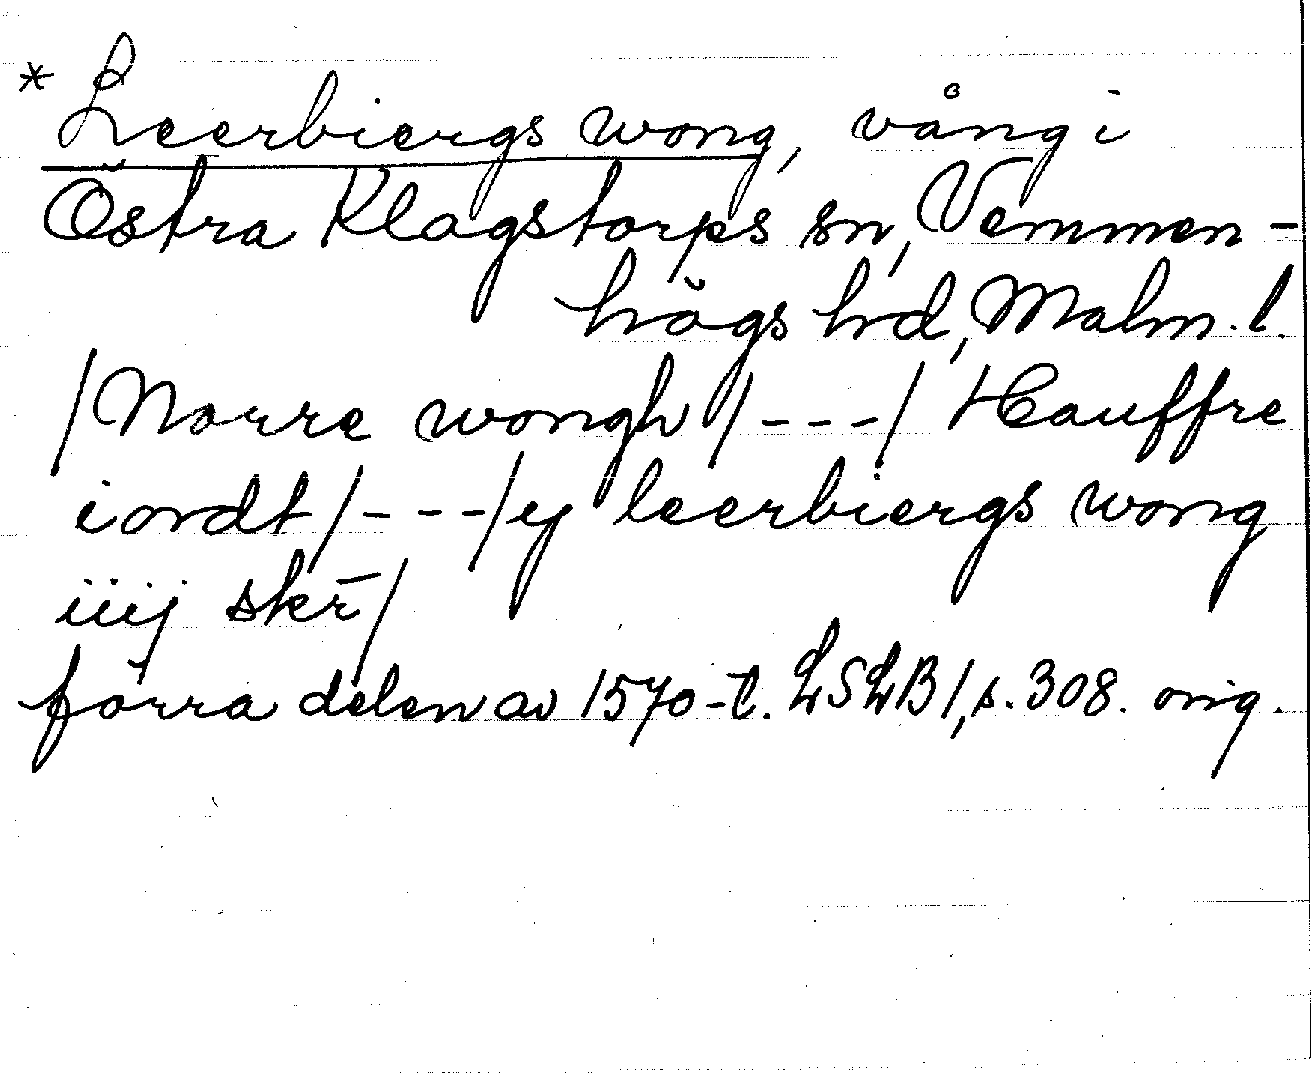 * Leerbiergs wong, vång i
Östra Klagstorps sn, Vemmen-
högs hd, Malm. l.
/Norre wongh/---/ Hauffre
iordt/---/ y leerbiergs wong
iiij skr̄/
förra delen av 1570-t. LSLB 1, s. 308. orig.